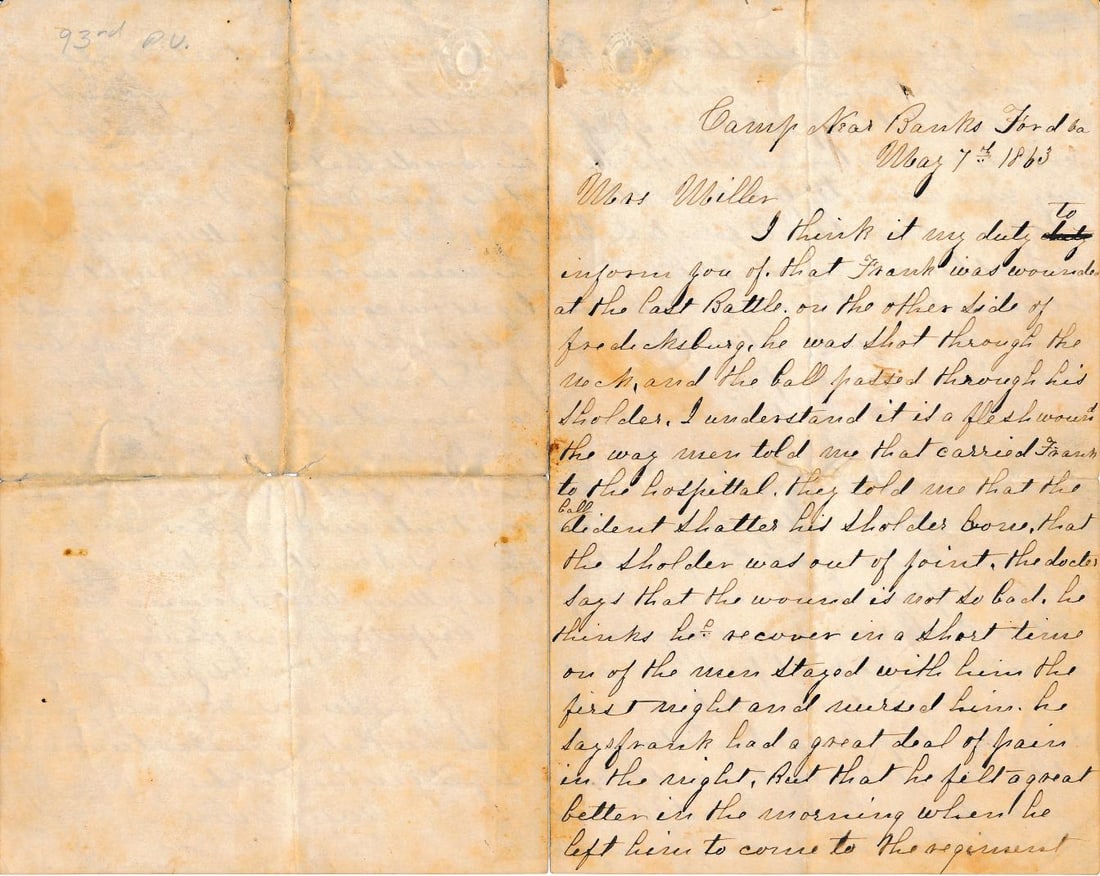 93rd P.V.
Camp Near Banks Ford Va
May 7th 1863
Mrs Miller
I think it my duty to
inform you of. that Frank was wounded
at the last Battle. on the other side of
fredicksburg, he was shot through the
neck, and the ball passed through his
sholder. I understand it is a flesh wound
the way men told me that carried Frank
to the hospittal. they told me that the
ball dident shatter his sholder bone, that
the sholder was out of joint. the docter
says that the wound is not so bad. he
thinks he recover in a short time
on of the men stayed with him the
first night and nursed him. he
says frank had a great deal of pain
in the night, But that he felt a great
better in the morning when he
left him to come to the regiment